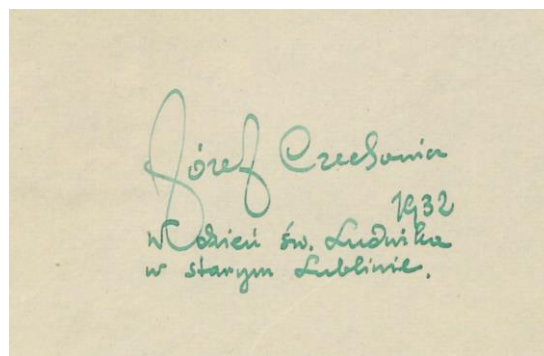 Józef Czechowicz
1932
W dzień św. Ludwika
w starym Lublinie.